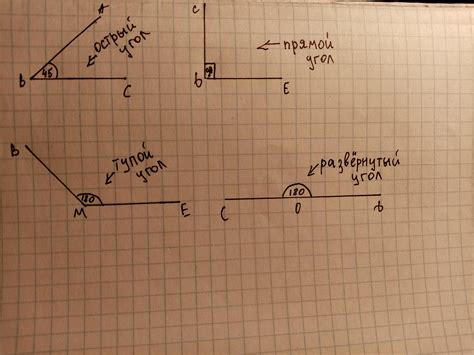 A
острый
угол
B
45
C
C
прямой
угол
90
D
E
B
тупой
угол
180
M
E
развёрнутый
угол
180
C
O
D